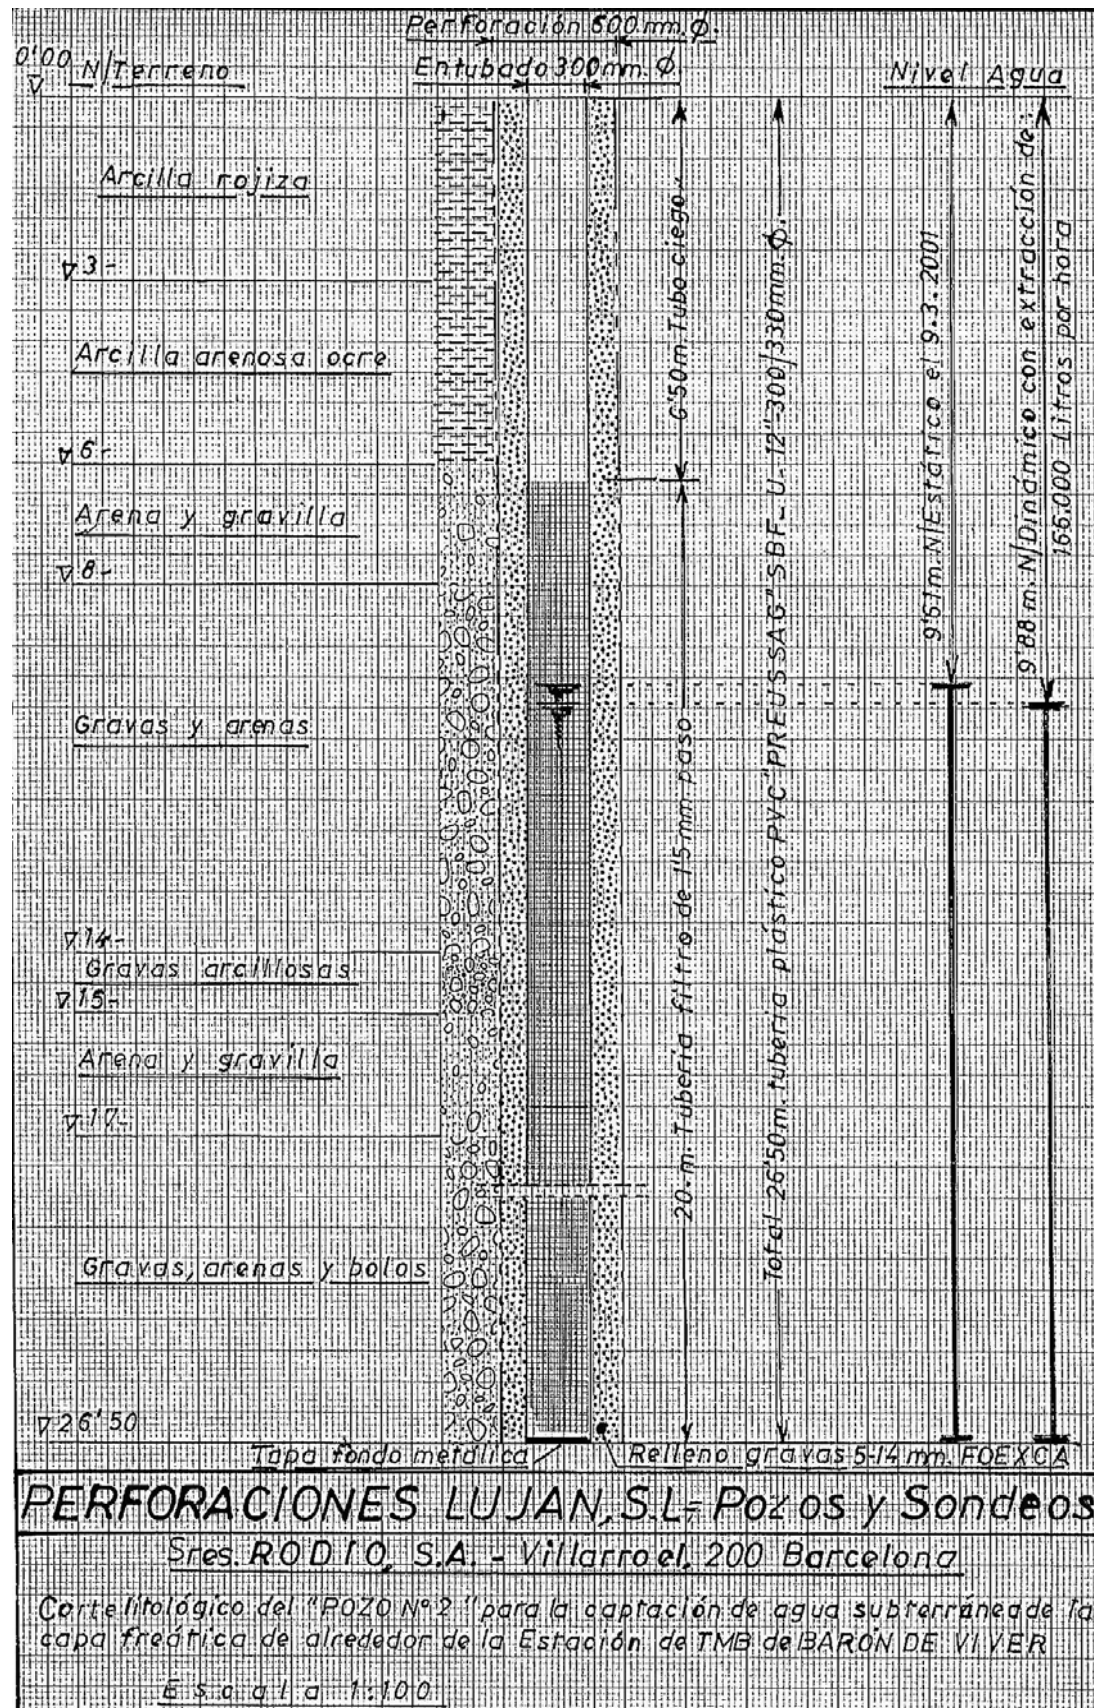 Perforación 600 mm. Ø.
0'00 N/Terreno
Entubado 300 mm. Ø
Nivel Agua
Arcilla rojiza
3-
Arcilla arenosa ocre
6-
Arena y gravilla
8-
Gravas y arenas
14-
Gravas arcillosas
15-
Arena y gravilla
17-
Gravas, arenas y bolos
26'50
6'50 m. Tubo ciego
20.m. Tuberia filtro de 1'5 mm. paso
Total 26'50 m. tuberia plástico PVC "PREUSSAG" SBF-U-12"-300/330 mm. Ø.
9'61 m. N/Estático el 9.3.2001
9'88 m. N/Dinámico con extracción de:
166.000 Litros por hora
Tapa fondo metálica
Relleno gravas 5-14 mm. FOEXCA
PERFORACIONES LUJAN, S.L= Pozos y Sondeos
Sres. RODIO, S.A. - Villarroel, 200 Barcelona
Corte litológico del "POZO Nº 2" para la captación de agua subterránea de la
capa freática de alrededor de la Estación de TMB de BARÓN DE VIVER
Escala 1:100